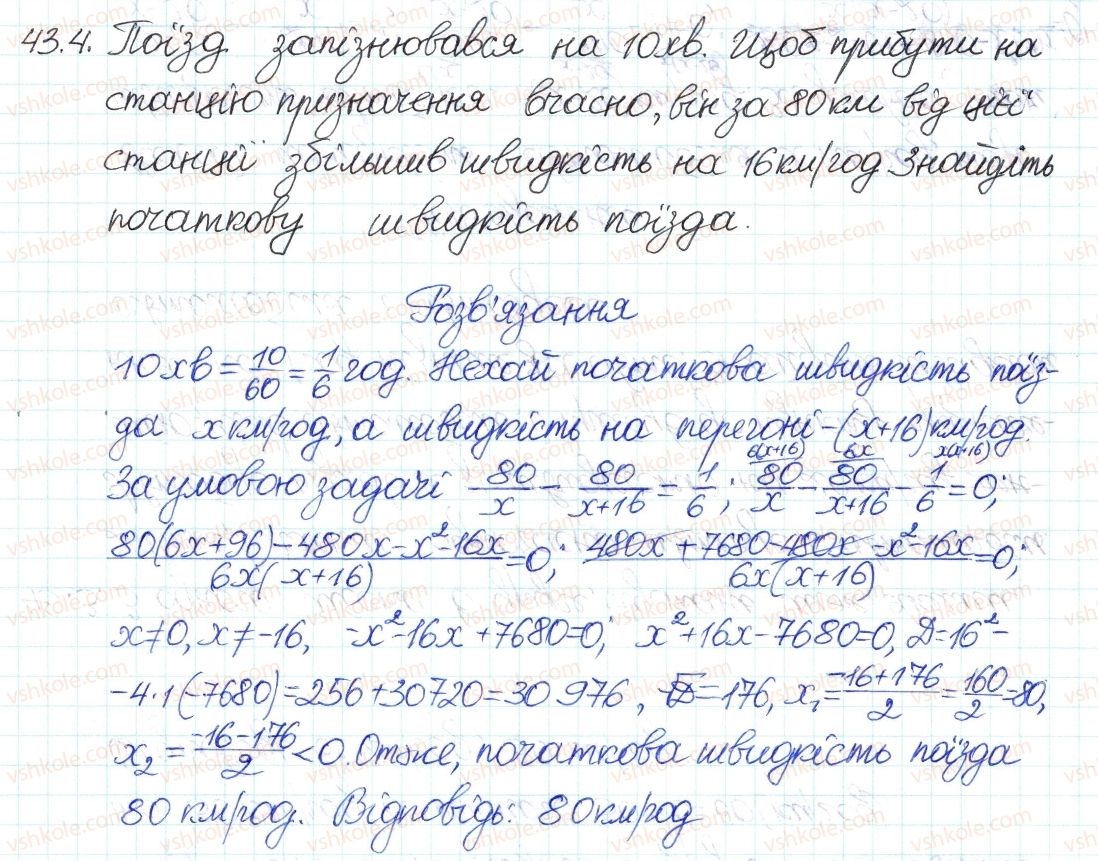 43.4. Поїзд запізнювався на 10хв. Щоб прибути на
станцію призначення вчасно, він за 80км від цієї
станції збільшив швидкість на 16км/год. Знайдіть
початкову швидкість поїзда.
Розв'язання
10хв = 10/60 = 1/6 год. Нехай початкова швидкість поїз-
да x км/год, а швидкість на перегоні - (x+16) км/год.
6(x+16) 6x x(x+16)
За умовою задачі 80/x - 80/(x+16) = 1/6; 80/x - 80/(x+16) - 1/6 = 0;
(80(6x+96) - 480x - x² - 16x)/(6x(x+16)) = 0; (480x + 7680 - 480x - x² - 16x)/(6x(x+16)) = 0;
x≠0, x≠-16, -x² - 16x + 7680 = 0; x² + 16x - 7680 = 0, D = 16² -
- 4·1(-7680) = 256 + 30720 = 30 976, √D = 176, x₁ = (-16+176)/2 = 160/2 = 80,
x₂ = (-16-176)/2 < 0. Отже, початкова швидкість поїзда
80 км/год. Відповідь: 80 км/год
vshkole.com